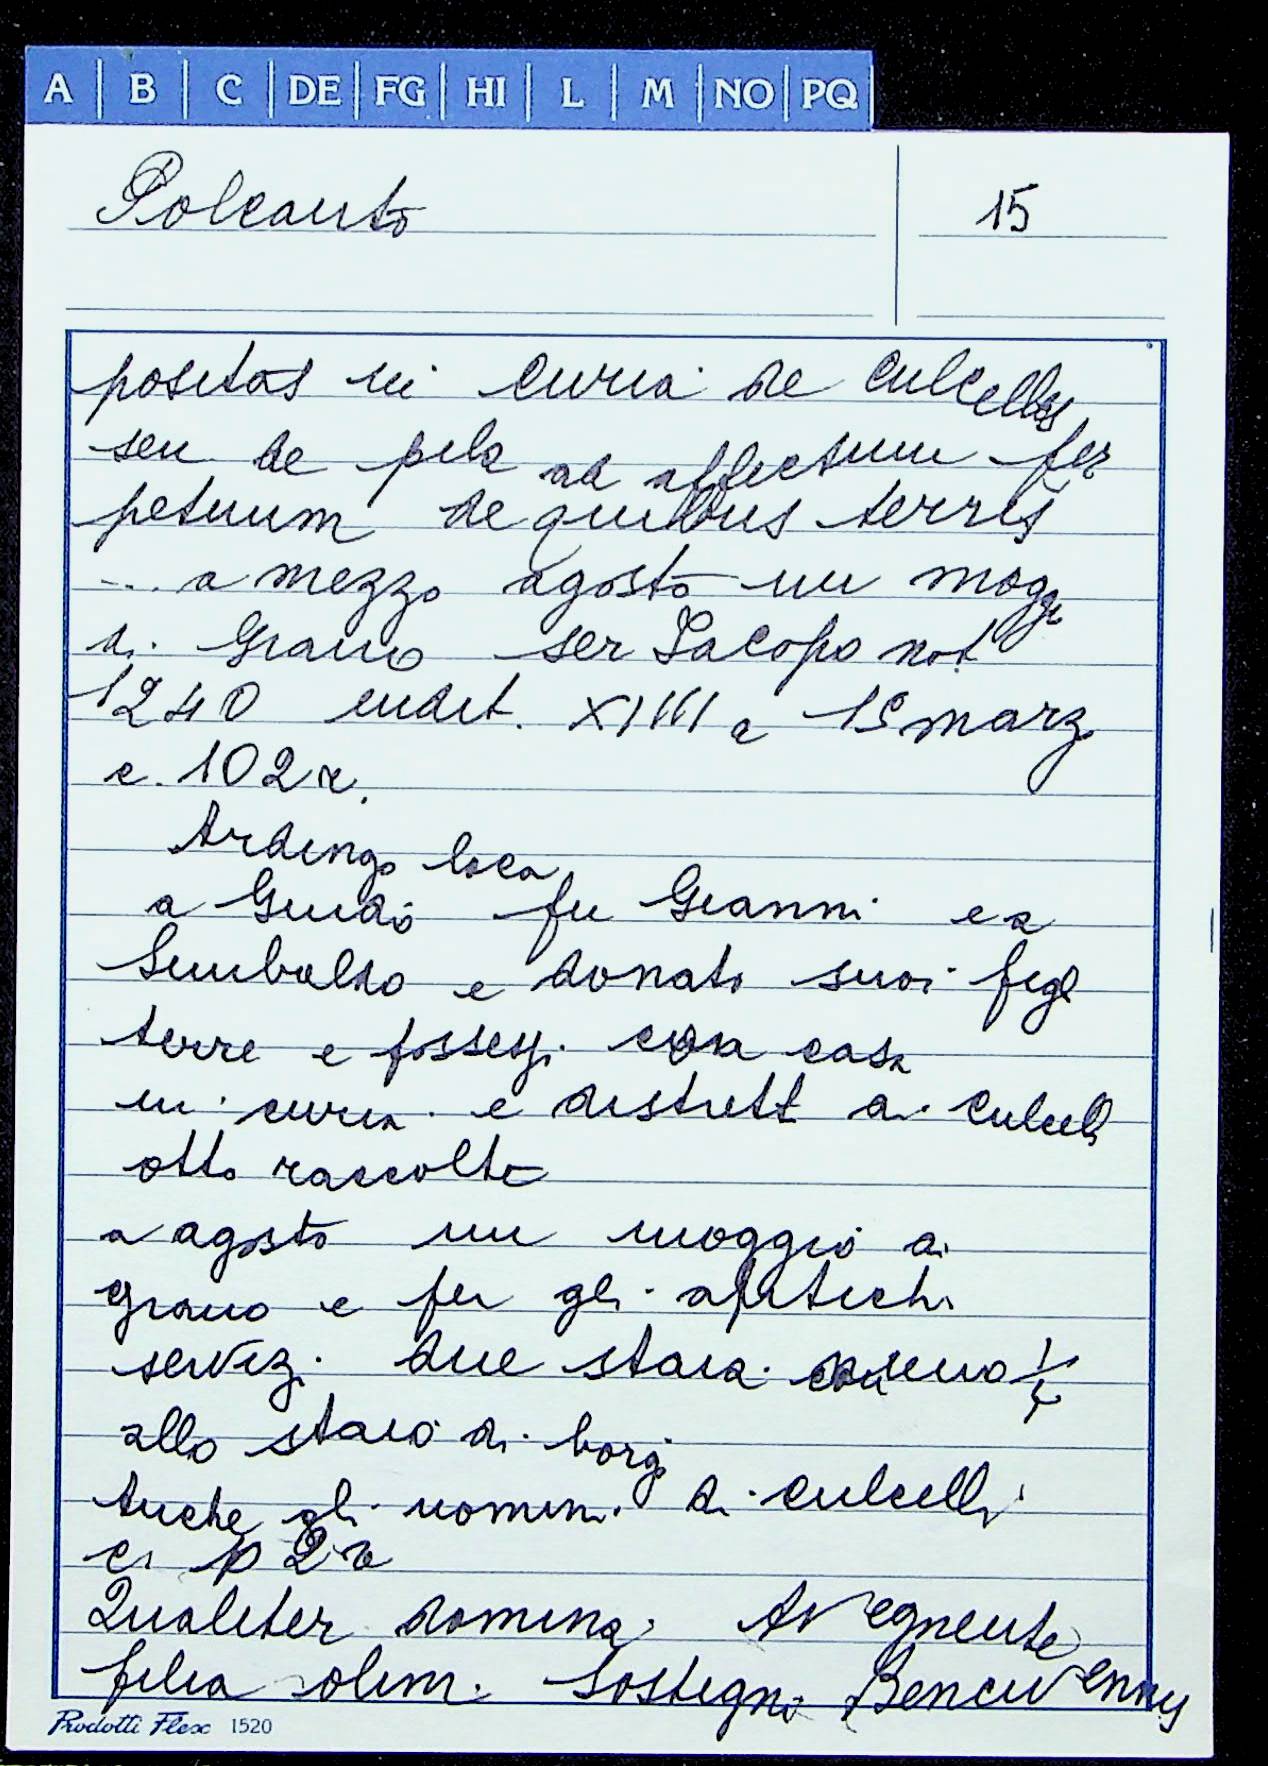 A B C DE FG HI L M NO PQ
Polcanto 15
positas in curia de culcellis
seu de pila ad affictum per
petuum de quibus terris
... a mezzo agosto un moggi
di grano ser Iacopo not
1240 indit. XIIII a 15 marz
c. 102 r.
Ardingo loca
a Guido fu Gianni e a
Sinibaldo e donato suoi figl
terre e possess. con casa
in curia e distrett di culcell
otto raccolte
a agosto un moggio di
grano e per gli afitichi
serviz. due staia meno 1/4
allo staio di borgo
Anche gli uomini di culcelli
c. 2 v
Qualiter domina Avegnente
filia olim Sostegni Bencivenny
Prodotti Flex 1520